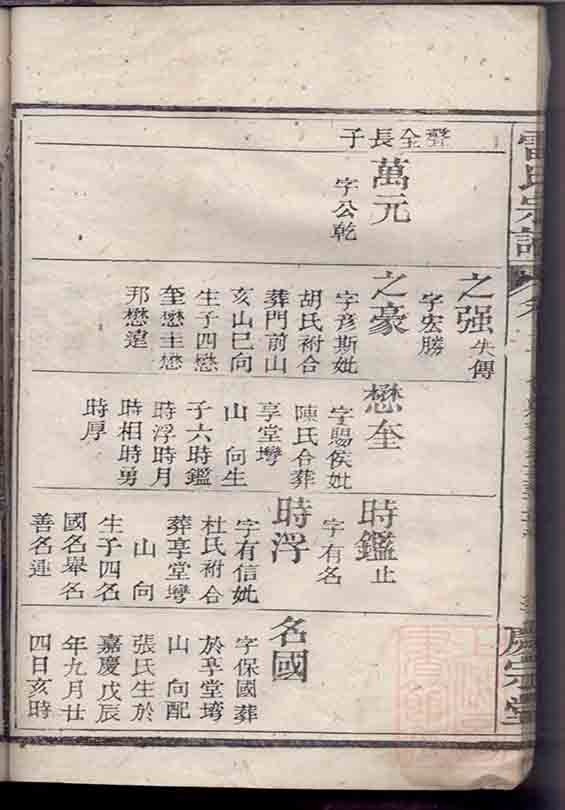 雷氏宗譜
慶宗堂
聲全長子
萬元
字公乾
之强失傳
字宏勝
之豪
字彦斯妣
胡氏祔合
葬門前山
亥山巳向
生子四懋
奎懋圭懋
邦懋逵
懋奎
字賜侯妣
陳氏合葬
享堂塆
山 向生
子六時鑑
時浮時月
時相時勇
時厚
時鑑止
字有名
時浮
字有信妣
杜氏祔合
葬享堂塆
山 向
生子四名
國名舉名
善名連
名國
字保國葬
於享堂塆
山 向配
張氏生於
嘉慶戊辰
年九月廿
四日亥時